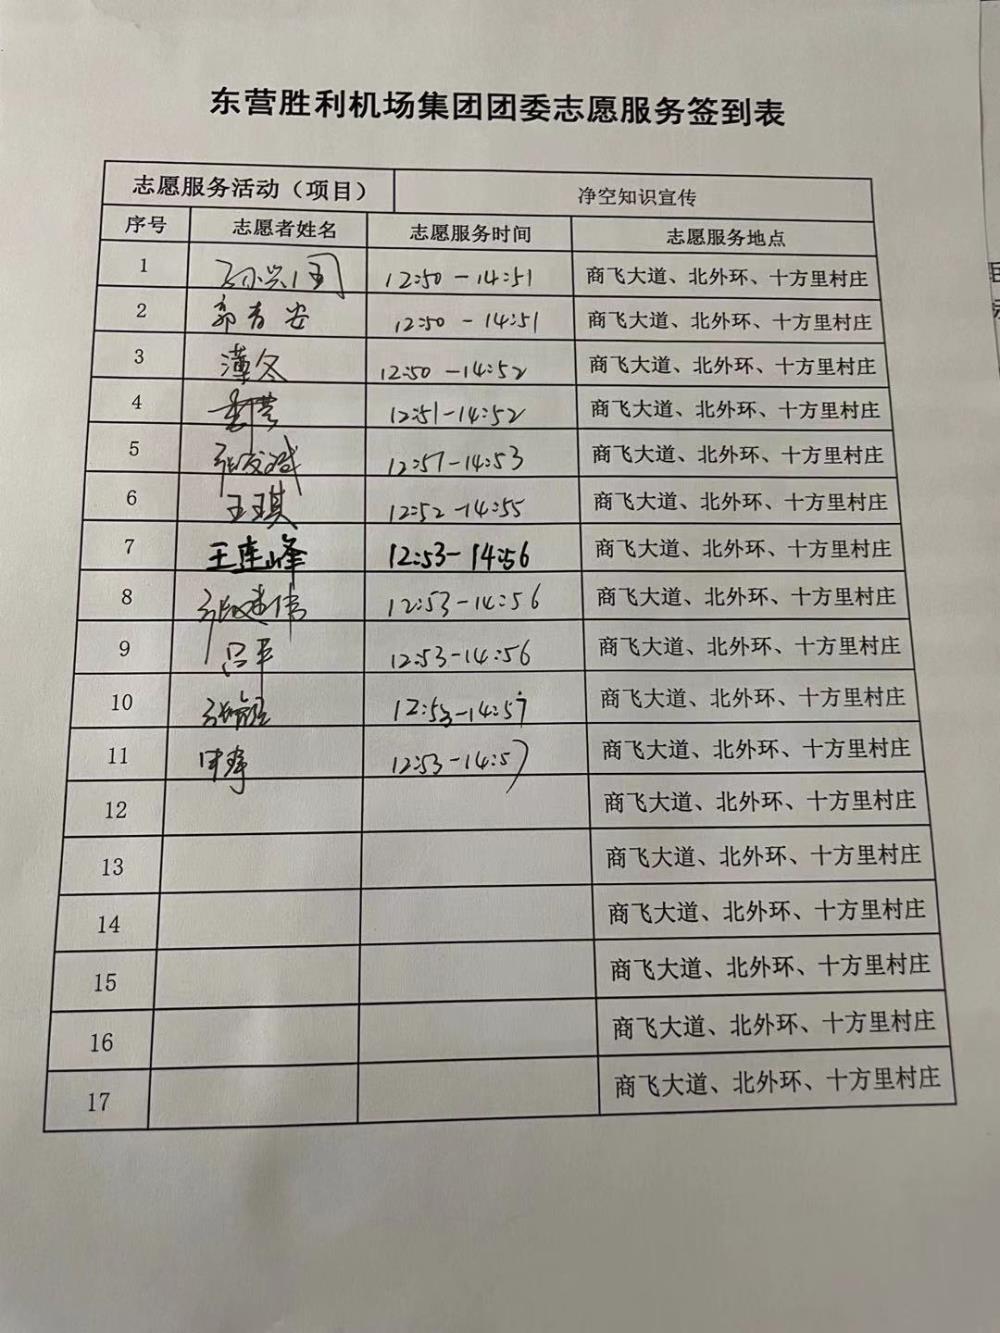 东营胜利机场集团团委志愿服务签到表
志愿服务活动（项目） 净空知识宣传
序号 志愿者姓名 志愿服务时间 志愿服务地点
1 12:50-14:51 商飞大道、北外环、十方里村庄
2 郭青安 12:50-14:51 商飞大道、北外环、十方里村庄
3 薄冬 12:50-14:52 商飞大道、北外环、十方里村庄
4 12:51-14:52 商飞大道、北外环、十方里村庄
5 14:53 商飞大道、北外环、十方里村庄
6 王琪 12:52-14:55 商飞大道、北外环、十方里村庄
7 王连峰 12:53-14:56 商飞大道、北外环、十方里村庄
8 张建伟 12:53-14:56 商飞大道、北外环、十方里村庄
9 吕平 12:53-14:56 商飞大道、北外环、十方里村庄
10 12:53-14:57 商飞大道、北外环、十方里村庄
11 12:53-14:57 商飞大道、北外环、十方里村庄
12 商飞大道、北外环、十方里村庄
13 商飞大道、北外环、十方里村庄
14 商飞大道、北外环、十方里村庄
15 商飞大道、北外环、十方里村庄
16 商飞大道、北外环、十方里村庄
17 商飞大道、北外环、十方里村庄